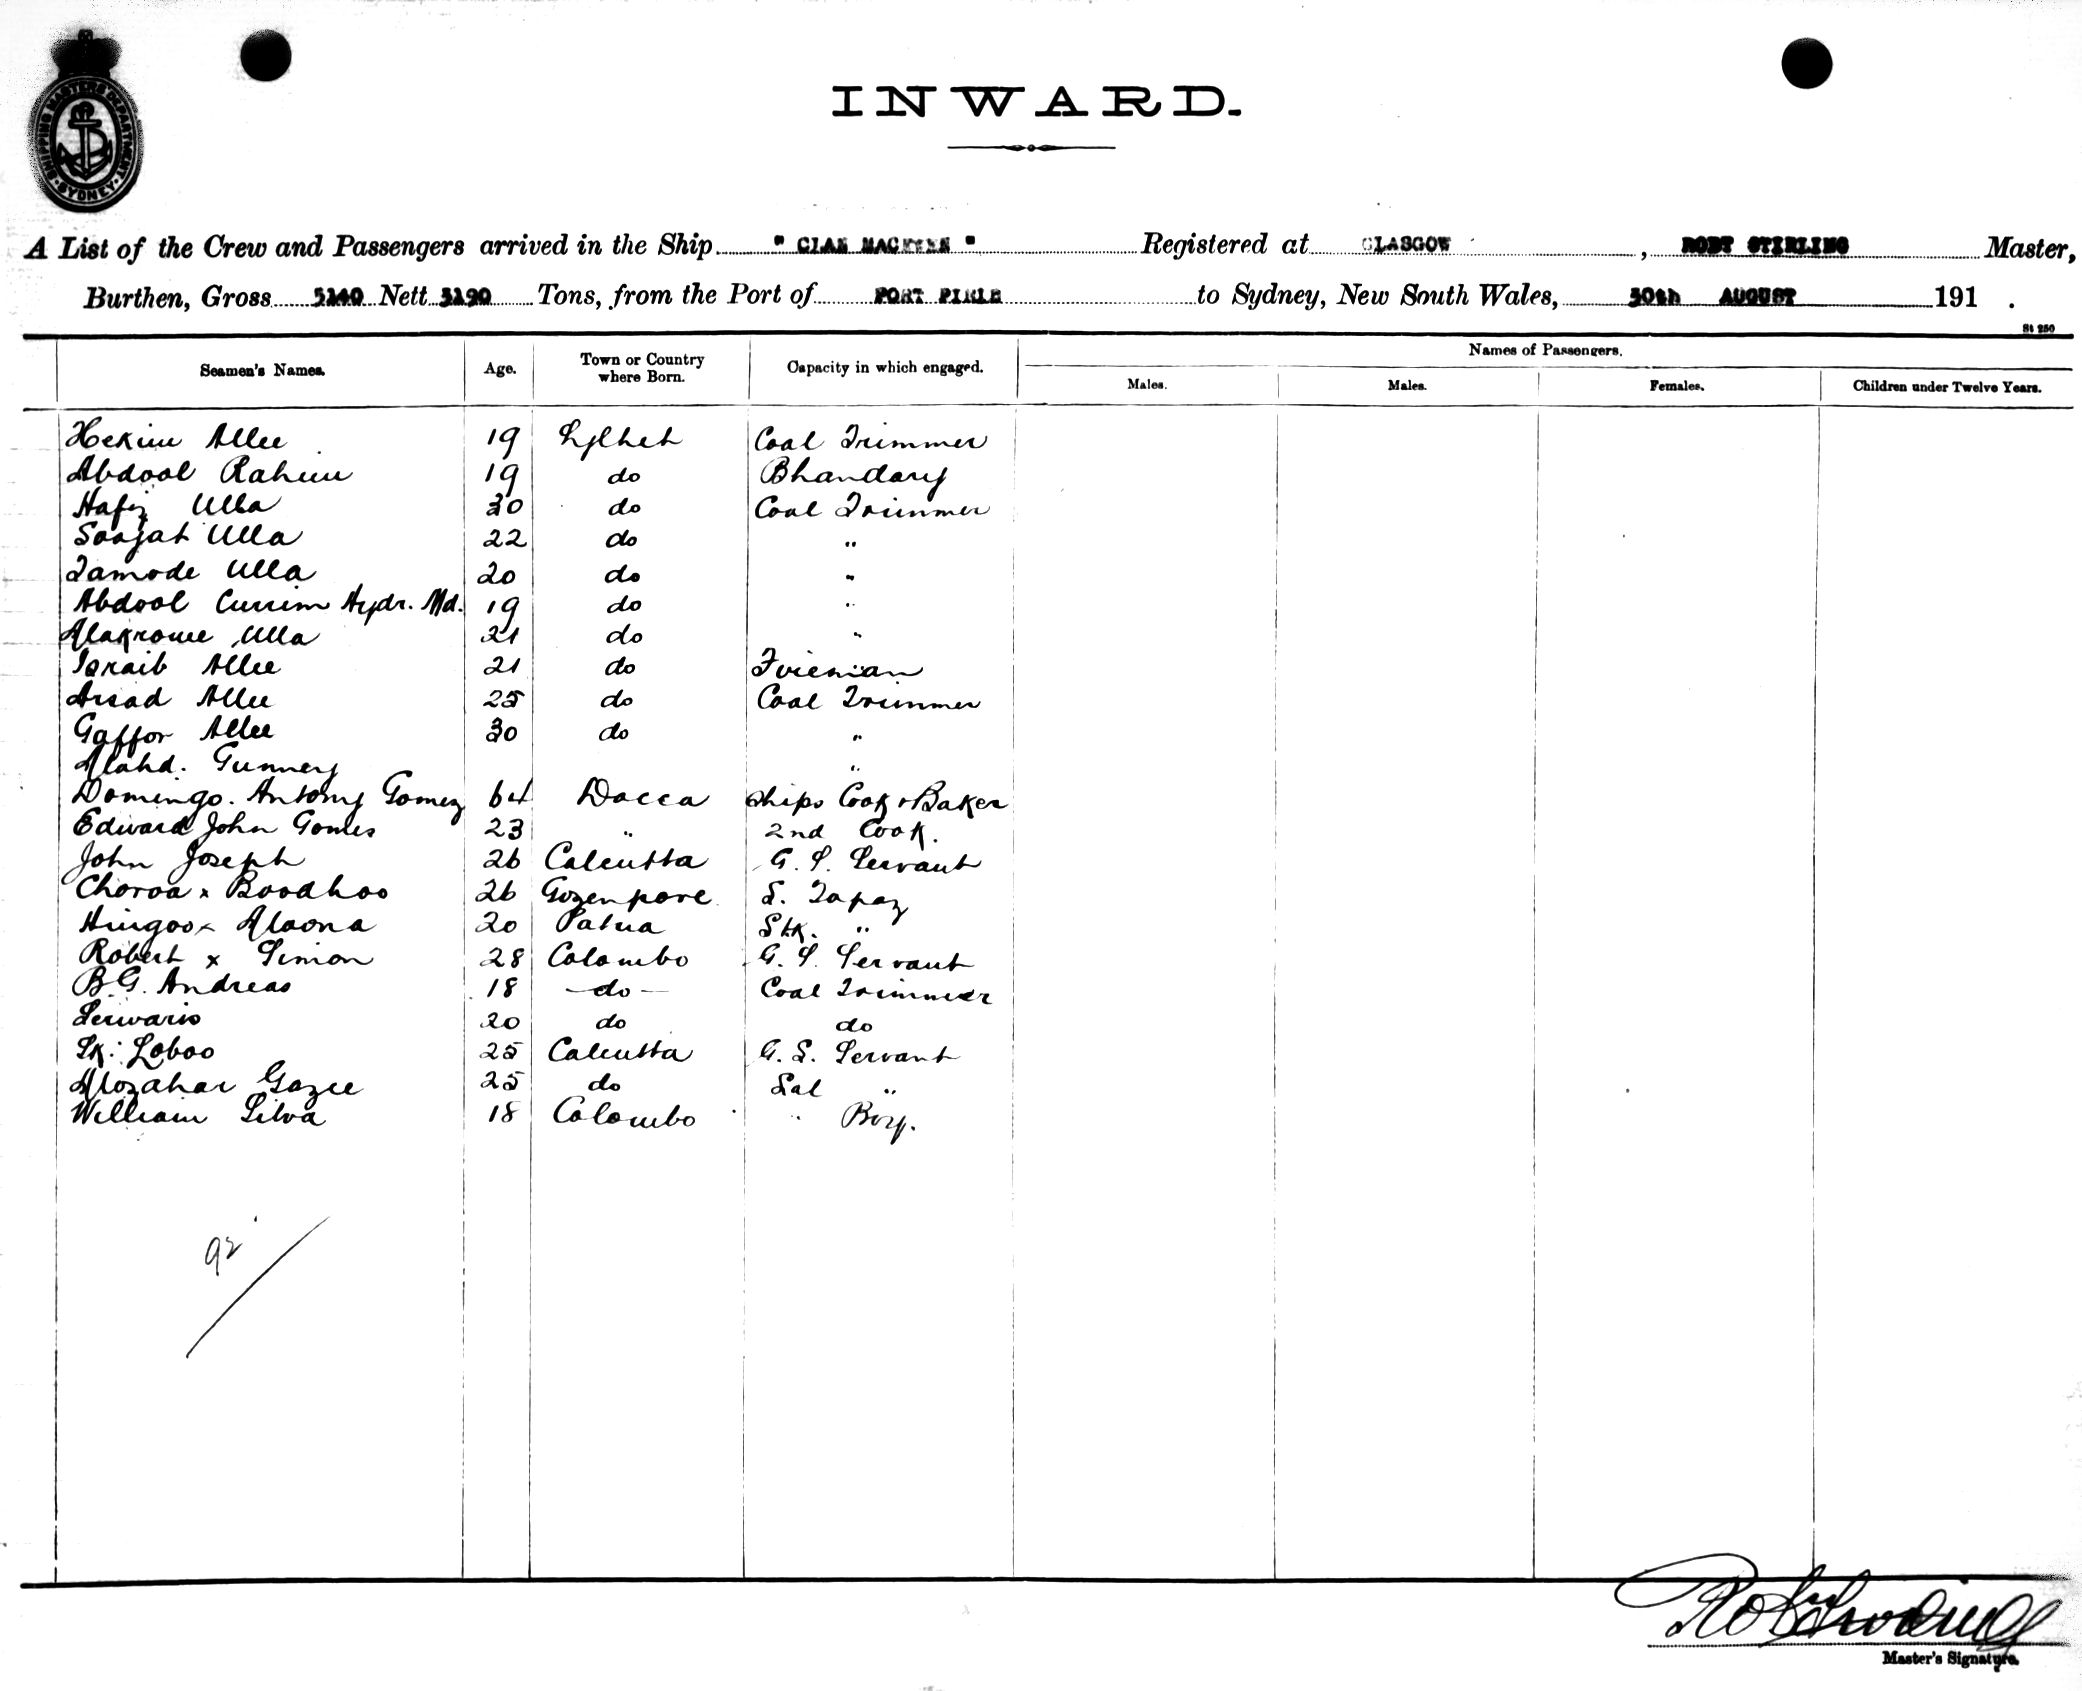 SHIPPING MASTERS DEPARTMENT
SYDNEY
INWARD.
A List of the Crew and Passengers arrived in the Ship " CLAN MAC " Registered at GLASGOW , ROBT STIRLING Master,
Burthen, Gross 5140 Nett 3190 Tons, from the Port of PORT PIRIE to Sydney, New South Wales, 30th AUGUST 191 .
St 250
Seamen's Names. Age. Town or Country where Born. Capacity in which engaged. Names of Passengers.
Males. Males. Females. Children under Twelve Years.
Hekim Allee 19 Sylhet Coal Trimmer
Abdool Rahim 19 do Bhandary
Hafiz Ulla 30 do Coal Trimmer
Soojat Ulla 22 do "
Tamode Ulla 20 do "
Abdool Currim Hydr. Md. 19 do "
Makrome Ulla 21 do "
Israib Allee 21 do Fireman
Arsad Allee 25 do Coal Trimmer
Gaffor Allee 30 do "
Mahd. Gunnery "
Domingo. Antony Gomez 64 Dacca Ships Cook & Baker
Edward John Gomes 23 " 2nd Cook.
John Joseph 26 Calcutta G. S. Servant
Choroa x Boodhoo 26 Gozenpore S. Topaz
Hingoo x Moona 20 Patna Stk. "
Robert x Simon 28 Colombo G. S. Servant
B.G. Andreas 18 - do - Coal Trimmer
Serwaris 20 do do
Sk. Loboo 25 Calcutta G. S. Servant
Mozahar Gazee 25 do Sal "
William Silva 18 Colombo " Boy.
92
Master's Signature.